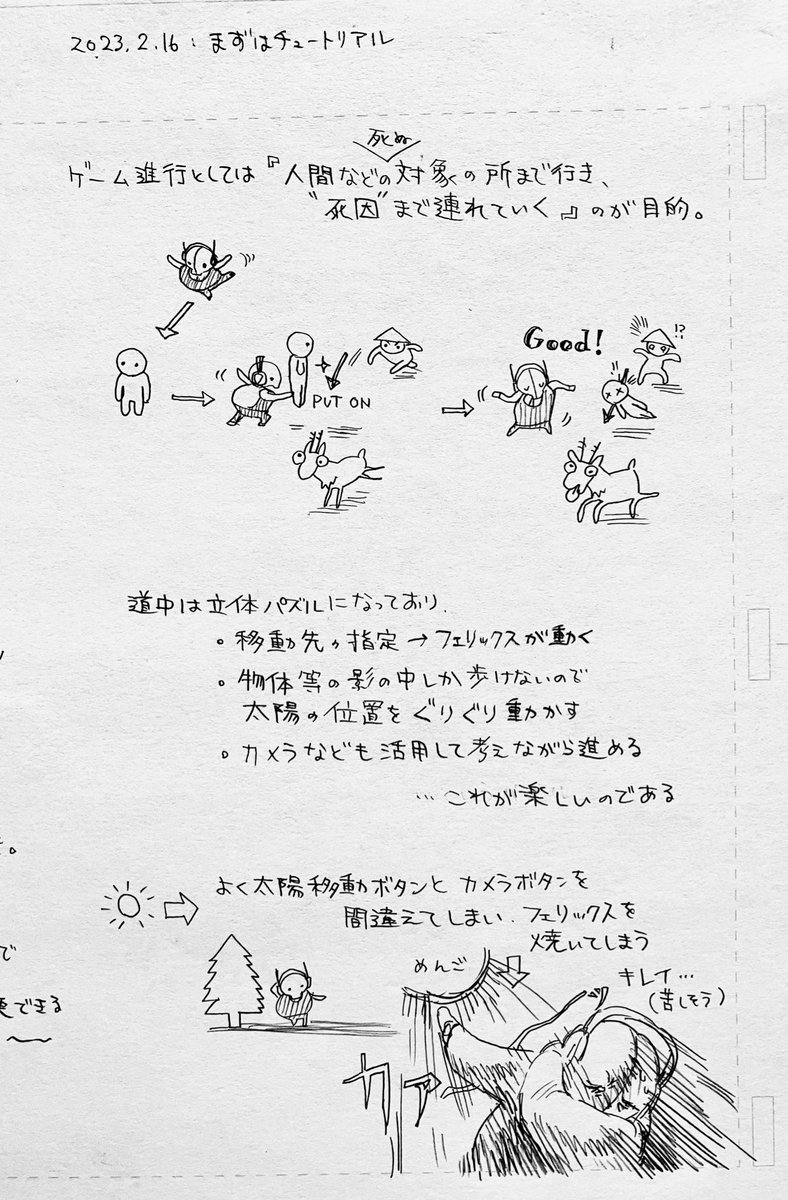 2023.2.16:まずはチュートリアル
死ぬ
ゲーム進行としては『人間などの対象の所まで行き、
"死因"まで連れていく』のが目的。
Good!
!?
PUT ON
道中は立体パズルになっており、
。移動先の指定→フェリックスが動く
。物体等の影の中しか歩けないので
太陽の位置をぐりぐり動かす
。カメラなども活用して考えながら進める
…これが楽しいのである
。
よく太陽移動ボタンとカメラボタンを
間違えてしまい、フェリックスを
焼いてしまう
で
できる
めんご
キレイ…
(苦しそう)
カァ